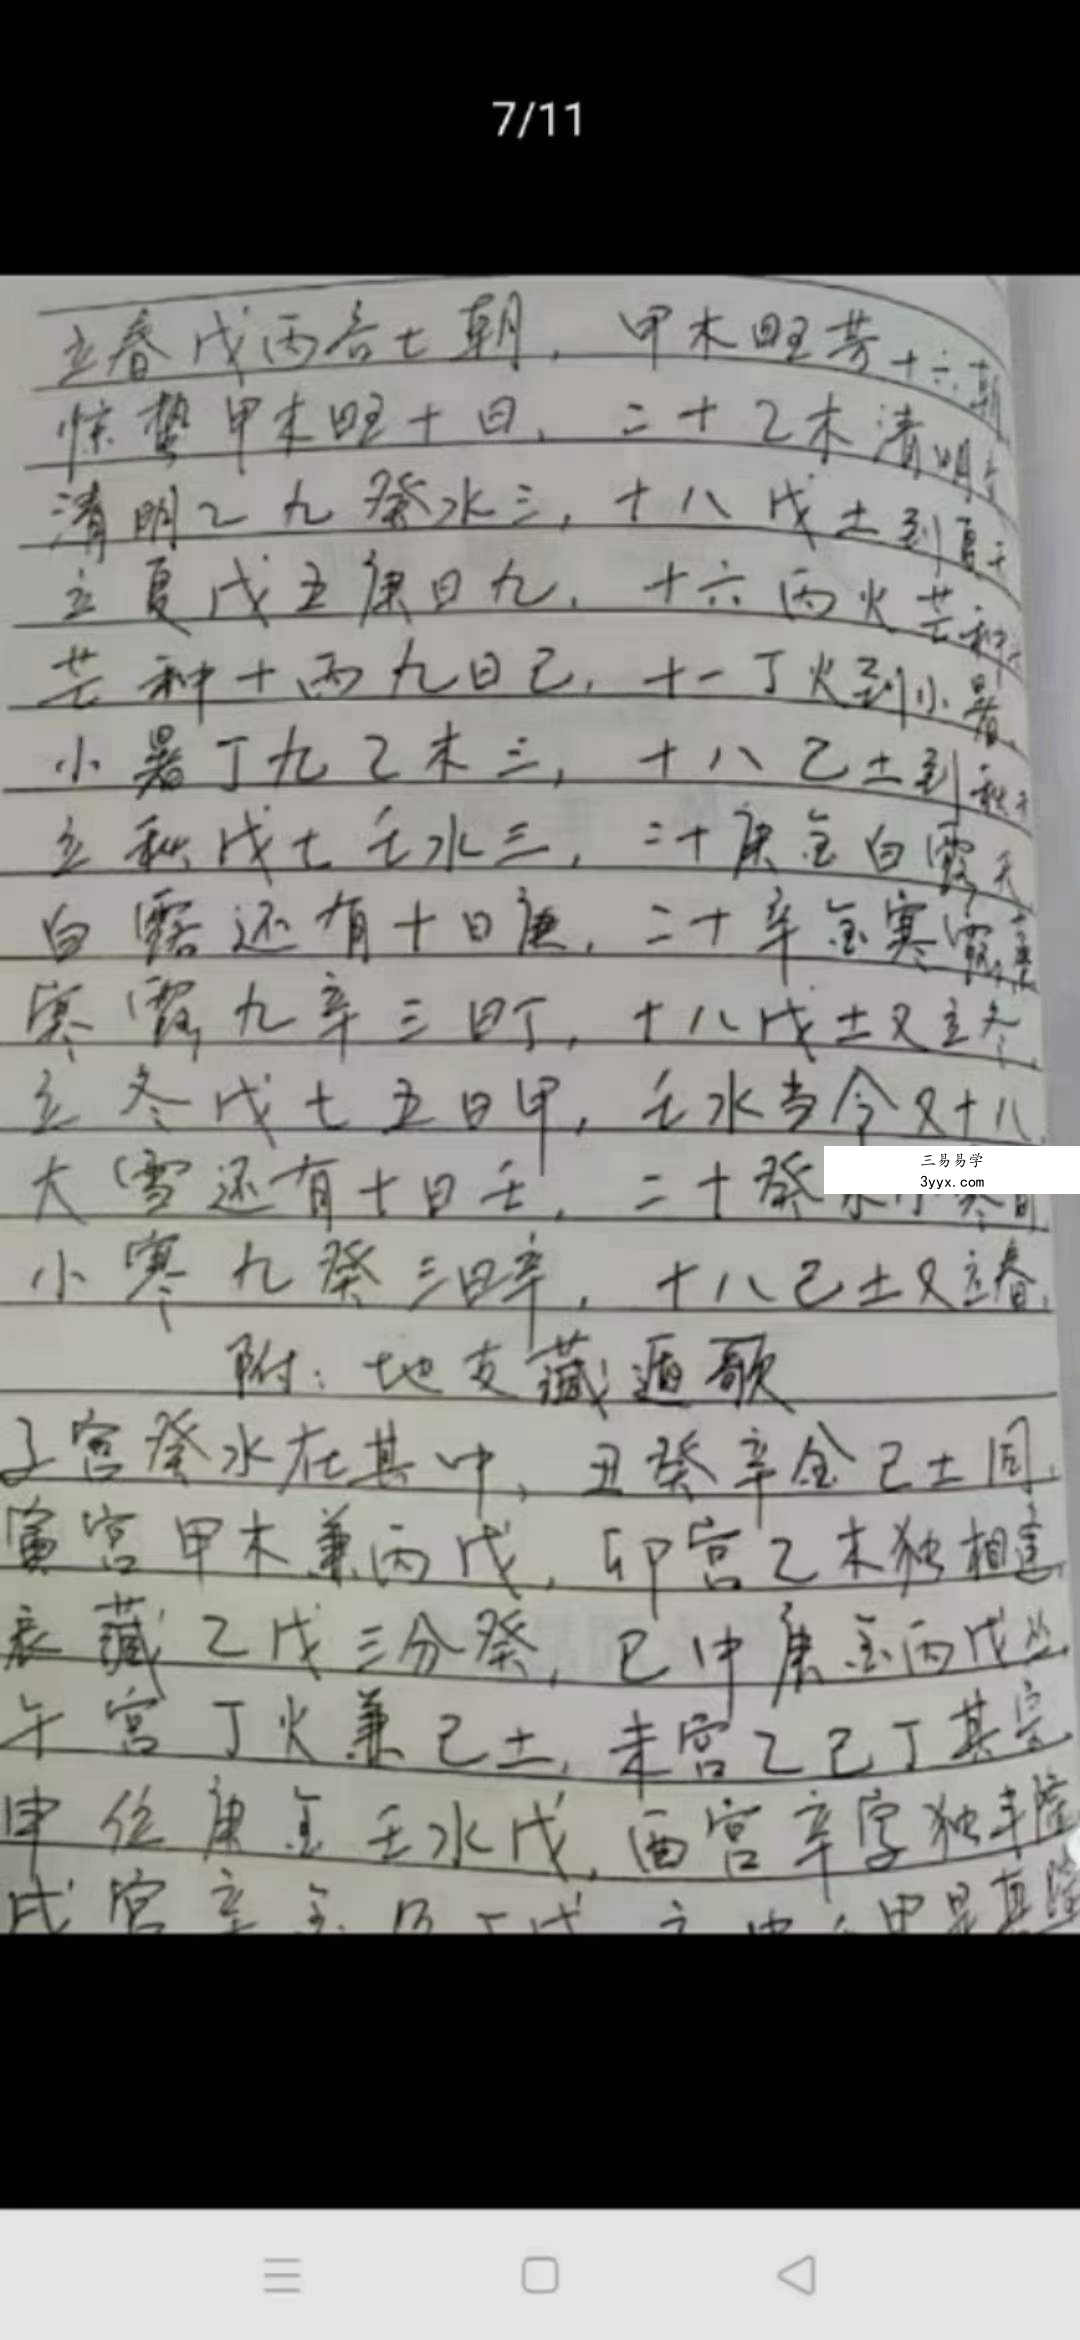 7/11
立春戊丙各七朝,甲木旺芳十六朝
惊蛰甲木旺十日,二十乙木清明
清明乙九癸水三,十八戊土到夏
立夏戊五庚日九,十六丙火芒种
芒种十丙九日己,十一丁火到小暑.
小暑丁九乙木三,十八己土到秋
立秋戊七壬水三,二十庚金白露天
白露还有十日庚,二十辛金寒露
寒露九辛三日丁,十八戊土又立冬.
立冬戊七五日甲,壬水当令又十八.
三易易学
3yyx.com
大雪还有十日壬,二十癸水小寒
小寒九癸三日辛,十八己土又立春.
附:地支藏遁歌
子宫癸水在其中,丑癸辛金己土同.
寅宫甲木兼丙戊,卯宫乙木独相逢
辰藏乙戊三分癸,巳中庚金丙戊丛
午宫丁火兼己土,未宫乙己丁其宗
申位庚金壬水戊,酉宫辛字独丰隆
戌宫辛金及丁戊